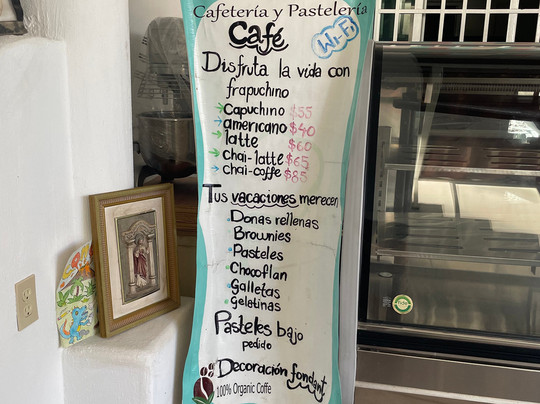 Cafetería y Pastelería
Café
Wi-Fi
Disfruta la vida con
frapuchino
Capuchino $55
americano $40
latte $60
chai-latte $65
chai-coffe $85
Tus vacaciones merecen
Donas rellenas
Brownies
Pasteles
Chocoflan
Galletas
Gelatinas
Pasteles bajo
pedido
Decoración fondant
100% Organic Coffe